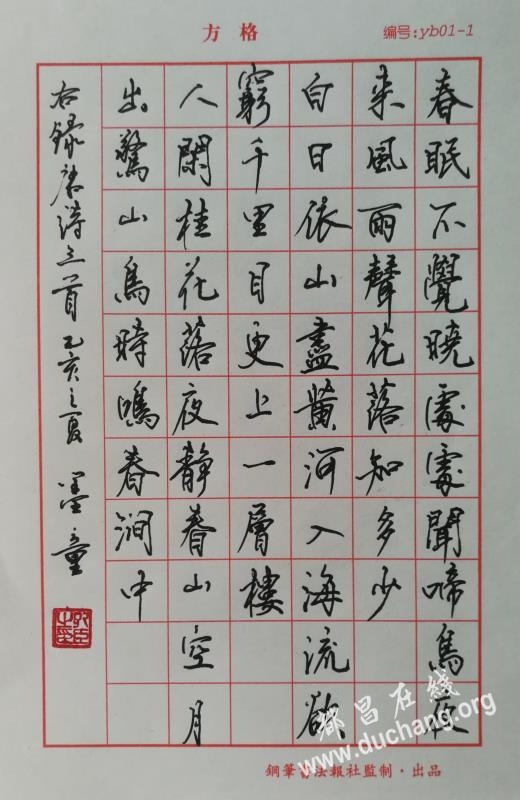 方格
编号:yb01-1
春眠不覺曉處處聞啼鳥夜
来風雨聲花落知多少
白日依山盡黄河入海流欲
窮千里目更上一層樓
人閑桂花落夜静春山空月
出驚山鳥時鳴春澗中
右録唐詩三首己亥之夏 墨童
鋼筆書法報社監制·出品
都昌在线
www.duchang.org